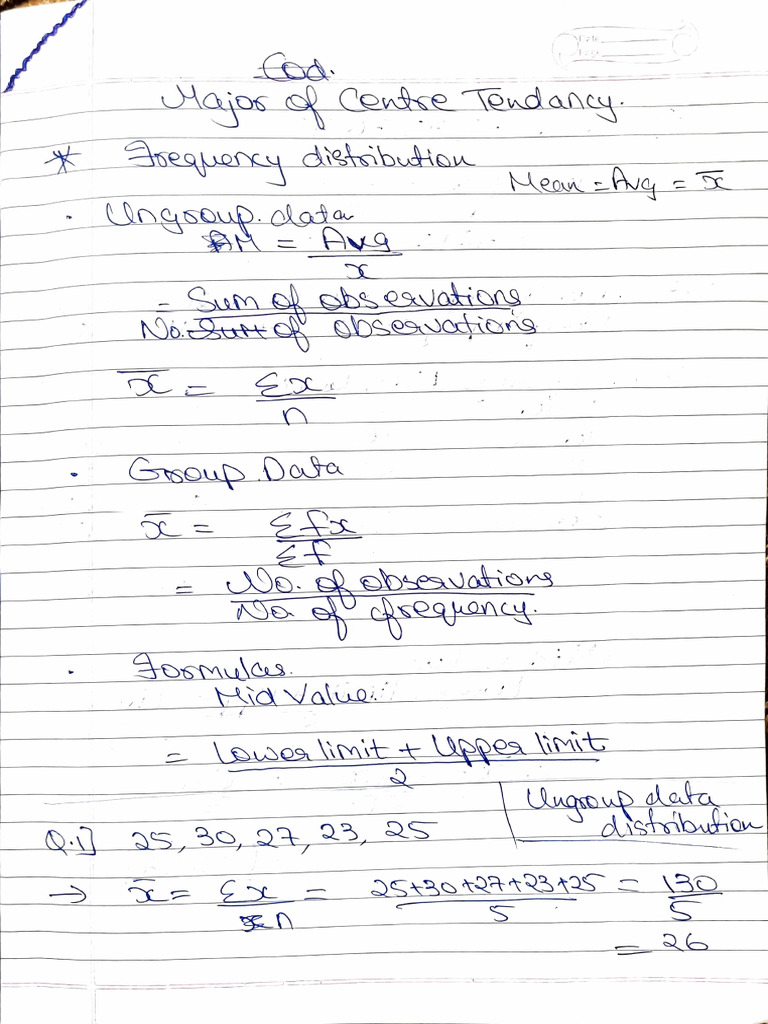 Cod.
Major of Centre Tendancy.
* Frequency distribution
Mean = Avg = x̄
. Ungroup. data
AM = Avg / x
= Sum of observations / No. of observations
x̄ = Σx / n
. Group. Data
x̄ = Σfx / Σf
= No. of observations / No of cfrequency.
. Formulas.
Mid Value.
= Lower limit + Upper limit / 2
Ungroup data
distribution
Q.1] 25, 30, 27, 23, 25
→ x̄ = Σx / n = 25+30+27+23+25 / 5 = 130 / 5
= 26